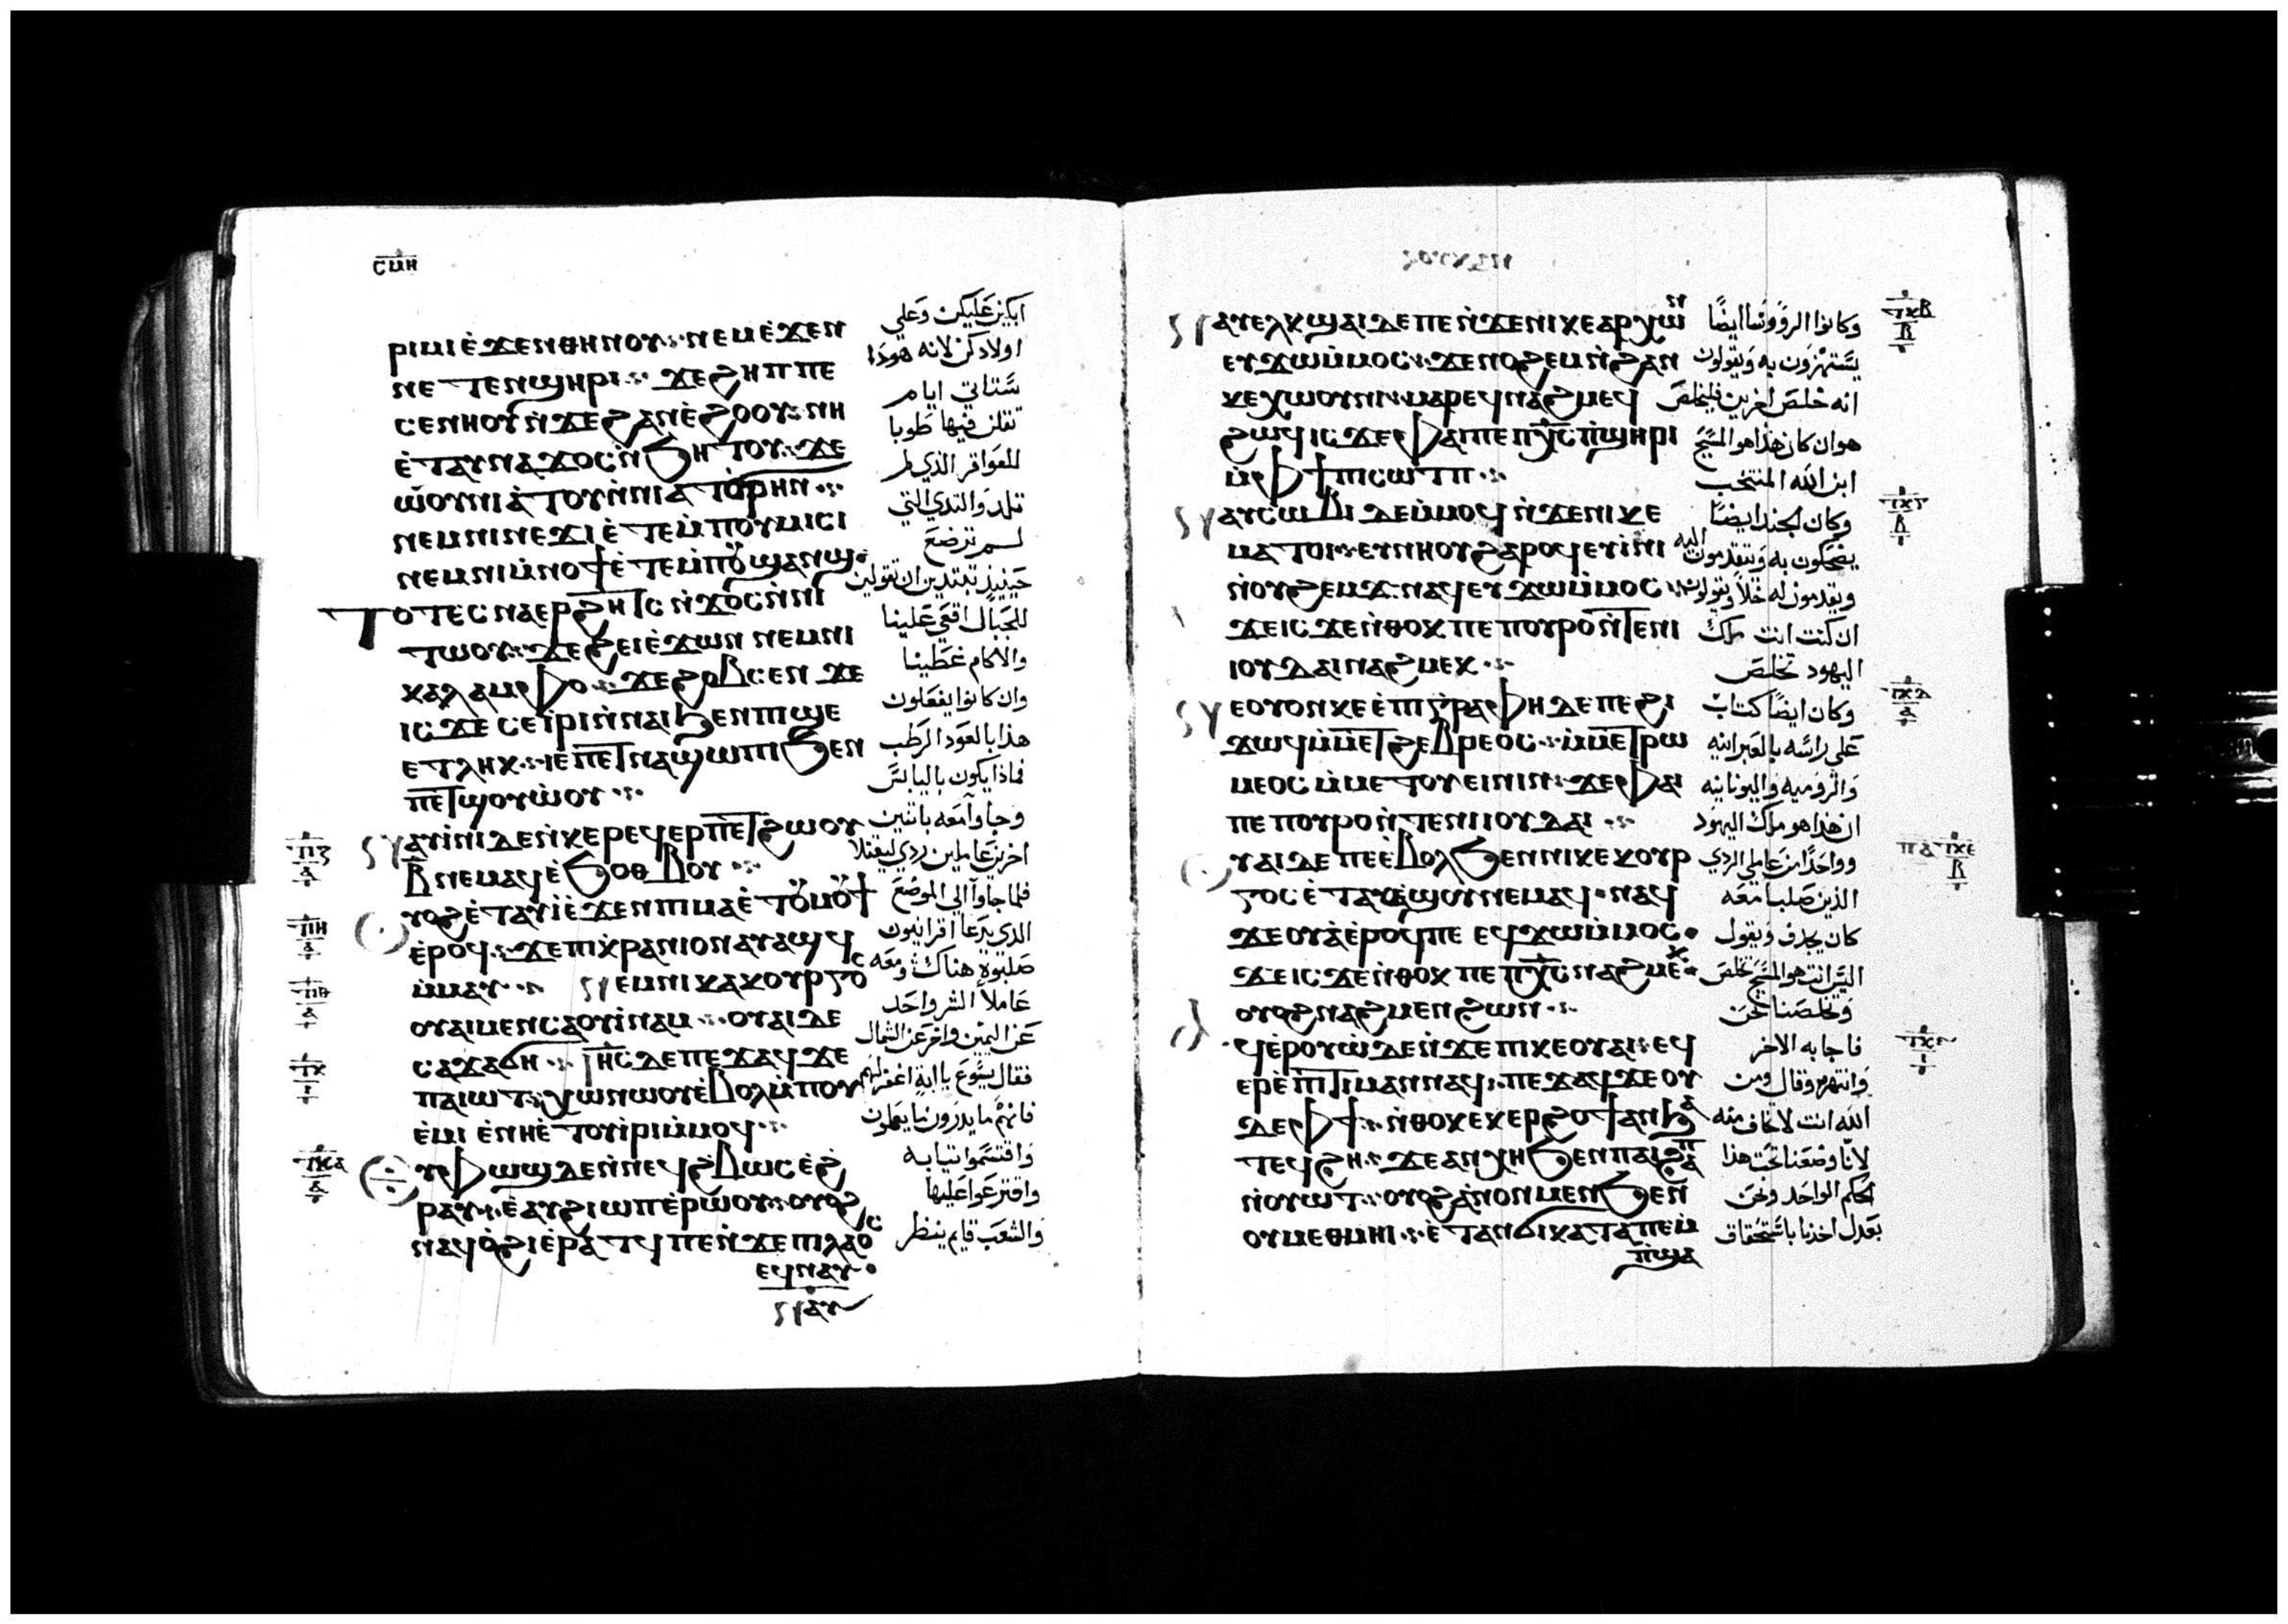 ⲥⲙⲏ
ⲣⲓⲙⲓ ⲉ̀ϫⲉⲛ ⲑⲏⲛⲟⲩ ⲛⲉⲙ ⲉ̀ϫⲉⲛ
ⲛⲉⲧⲉⲛϣⲏⲣⲓ ϫⲉ ϩⲏⲡⲡⲉ
ⲥⲉⲛⲏⲟⲩ ⲛ̀ϫⲉ ϩⲁⲛⲉ̀ϩⲟⲟⲩ ⲛⲏ
ⲉ̀ⲧⲁⲩⲛⲁϫⲟⲥ ⲛ̀ϧⲏⲧⲟⲩ ϫⲉ
ⲱⲟⲩⲛⲓⲁ̀ⲧⲟⲩ ⲛ̀ⲛⲓⲁⲧϭⲣⲏⲛ
ⲛⲉⲙ ⲛⲓⲛⲉϫⲓ ⲉ̀ⲧⲉ ⲙ̀ⲡⲟⲩⲙⲓⲥⲓ
ⲛⲉⲙ ⲛⲓⲙ̀ⲛⲟϯ ⲉ̀ⲧⲉ ⲙ̀ⲡⲟⲩϣⲁⲛϣ
ⲧⲟⲧⲉ ⲥⲛⲁⲉⲣϩⲏⲧⲥ ⲛ̀ϫⲟⲥ ⲛ̀ⲛⲓ
ⲧⲱⲟⲩ ϫⲉ ϩⲉⲓ ⲉ̀ϫⲱⲛ ⲛⲉⲙ ⲛⲓ
ⲕⲁⲗⲁⲙⲫⲟ ϫⲉ ϩⲟⲃⲥⲉⲛ ϫⲉ
ⲓⲥϫⲉ ⲥⲉⲓ̀ⲣⲓ ⲛ̀ⲛⲁⲓ ϧⲉⲛ ⲡⲓϣⲉ
ⲉⲧⲗⲏⲕ ⲓⲉ ⲡⲉⲧⲛⲁϣⲱⲡⲓ ϧⲉⲛ
ⲡⲉⲧϣⲟⲩⲱ̀ⲟⲩ
ⲁⲩⲓ̀ⲛⲓ ⲇⲉ ⲛ̀ⲕⲉⲣⲉϥⲉⲣⲡⲉⲧϩⲱⲟⲩ
ⲃ̅ ⲛⲉⲙⲁϥ ⲉ̀ϧⲟⲑⲃⲟⲩ
ⲩⲟϩ ⲉ̀ⲧⲁⲩⲓ̀ ⲉ̀ϫⲉⲛ ⲡⲓⲙⲁ ⲉ̀ⲧⲟⲩⲙⲟⲩϯ
ⲉ̀ⲣⲟϥ ϫⲉ ⲡⲓⲕ̀ⲣⲁⲛⲓⲟⲛ ⲁⲩⲁϣϥ
ⲙ̀ⲙⲁⲩ ⲛⲉⲙ ⲛⲓⲕⲁⲕⲟⲩⲣⲅⲟⲥ
ⲟⲩⲁⲓ ⲙⲉⲛ ⲥⲁⲟⲩⲓ̀ⲛⲁⲙ ⲟⲩⲁⲓ ⲇⲉ
ⲥⲁϫⲁϭⲏ ⲓⲏⲥ ⲇⲉ ⲡⲉϫⲁϥ ϫⲉ
ⲡⲁⲓⲱⲧ ⲭⲱ ⲛⲱⲟⲩ ⲉ̀ⲃⲟⲗ ⲙ̀ⲡⲟⲩ
ⲉ̀ⲙⲓ ⲉ̀ⲛⲏ ⲉ̀ⲧⲟⲩⲓ̀ⲣⲓ ⲙ̀ⲙⲟϥ
ⲩⲫⲱϣ ⲇⲉ ⲛ̀ⲛⲉϥϩ̀ⲃⲱⲥ ⲉ̀ϩ̀
ⲣⲁⲩ ⲉ̀ⲁⲩϩⲓⲱⲡ ⲉ̀ⲣⲱⲟⲩ ⲟⲩⲟϩ
ⲛⲁϥⲟ̀ϩⲓ ⲉ̀ⲣⲁⲧϥ ⲡⲉ ⲛ̀ϫⲉ ⲡⲓⲗⲁⲟⲥ
ⲉϥⲛⲁⲩ
ⲁⲩ
ابكين عليكن وعلي
اولادكن لانه هوذا
ستاتي ايام
تقلن فيها طوبا
للعواقر الذي لم
تلد والثدي التي
لم ترضع
حينيذ تبتدين ان تقولين
للجبال اقعي علينا
والاكام غطينا
وان كانوا يفعلون
هذا بالعود الرطب
فماذا يكون باليابس
وجاوا معه باثنين
اخرين عاملين ردي ليقتلا
فلما جاوا الي الموضع
الذي يدعا اقرانيون
صلبوه هناك ومعه
عاملا الشر واحد
عن اليمين واخر عن الشمال
فقال يسوع يا ابة اغفر لهم
فانهم ما يدرون ما يعملون
واقتسموا ثيابه
واقترعوا عليها
والشعب قايم ينظر
ⲁⲩⲉⲗⲕϣⲁⲓ ⲇⲉ ⲡⲉ ⲛ̀ϫⲉ ⲛⲓⲕⲉⲁⲣⲭⲱⲛ
ⲉⲩϫⲱ ⲙ̀ⲙⲟⲥ ϫⲉ ⲛⲟϩⲉⲙ ⲛ̀ϩⲁⲛ
ⲕⲉⲭⲱⲟⲩⲛⲓ ⲙⲁⲣⲉϥⲛⲁϩⲙⲉϥ
ϩⲱϥ ⲓⲥϫⲉ ⲫⲁⲓ ⲡⲉ ⲡⲭⲥ ⲡ̀ϣⲏⲣⲓ
ⲙ̀ⲫϯ ⲡⲓⲥⲱⲧⲡ
ⲁⲩⲥⲱⲃⲓ ⲇⲉ ⲙ̀ⲙⲟϥ ⲛ̀ϫⲉ ⲛⲓⲕⲉ
ⲙⲁⲧⲟⲓ ⲉⲩⲛⲏⲟⲩ ϩⲁⲣⲟϥ ⲉⲩⲓ̀ⲛⲓ
ⲛ̀ⲟⲩϩⲉⲙϫ ⲛⲁϥ ⲉⲩϫⲱ ⲙ̀ⲙⲟⲥ
ϫⲉ ⲓⲥϫⲉ ⲛ̀ⲑⲟⲕ ⲡⲉ ⲡⲟⲩⲣⲟ ⲛ̀ⲧⲉ ⲛⲓ
ⲓⲟⲩⲇⲁⲓ ⲛⲁϩⲙⲉⲕ
ⲉ ⲟⲩⲟⲛ ⲕⲉⲉ̀ⲡⲓⲅ̀ⲣⲁⲫⲏ ⲇⲉ ⲡⲉ ϩⲓ
ϫⲱϥ ⲙ̀ⲙⲉⲧϩⲉⲃⲣⲉⲟⲥ ⲙ̀ⲙⲉⲧⲣⲱ
ⲙⲉⲟⲥ ⲙ̀ⲙⲉⲧⲟⲩⲉⲓⲛⲓⲛ ϫⲉ ⲫⲁⲓ
ⲡⲉ ⲡⲟⲩⲣⲟ ⲛ̀ⲧⲉ ⲛⲓⲓⲟⲩⲇⲁⲓ
ⲩⲁⲓ ⲇⲉ ⲡⲉ ⲉ̀ⲃⲟⲗ ϧⲉⲛ ⲛⲓⲕⲉⲕⲟⲩⲣ
ⲅⲟⲥ ⲉ̀ⲧⲁⲩⲁ̀ϣⲟⲩ ⲛⲉⲙⲁϥ ⲛⲁϥ
ϫⲉ ⲟⲩⲁ̀ ⲉ̀ⲣⲟϥ ⲡⲉ ⲉϥϫⲱ ⲙ̀ⲙⲟⲥ
ϫⲉ ⲓⲥϫⲉ ⲛ̀ⲑⲟⲕ ⲡⲉ ⲡⲭⲥ ⲛⲁϩⲙⲉⲕ
ⲟⲩⲟϩ ⲛⲁϩⲙⲉⲛ ϩⲱⲛ
ϥⲉ̀ⲣⲟⲩⲱ̀ ⲇⲉ ⲛ̀ϫⲉ ⲡⲓⲕⲉⲟⲩⲁⲓ ⲉϥ
ⲉⲣⲉ̀ⲡⲓⲧⲓⲙⲁⲛ ⲛⲁϥ ⲡⲉϫⲁϥ ϫⲉ ⲟⲩ
ⲇⲉ ⲫϯ ⲛ̀ⲑⲟⲕ ⲉⲕⲉⲣϩⲟϯ ⲁⲛ ϧⲁ
ⲧⲉϥϩⲏ ϫⲉ ⲁⲛⲭⲏ ϧⲉⲛ ⲡⲁⲓϩⲁⲡ
ⲛ̀ⲟⲩⲱⲧ ⲟⲩⲟϩ ⲁ̀ⲛⲟⲛ ⲙⲉⲛ ϧⲉⲛ
ⲟⲩⲙⲉⲑⲙⲏⲓ ⲉ̀ⲧⲁⲛϭⲓ ⲕⲁⲧⲁ ⲡⲉⲙ
ⲡ̀ϣⲁ
وكانوا الروونسا ايضا
يستهزون به ويقولون
انه خلص اخرين فليخلص
هو ان كان هذا هو المسيح
ابن الله المنتخب
وكان الجند ايضا
يضحكون به ويتقدمون اليه
ويقدمون له خلا ويقولون
ان كنت انت ملك
اليهود تخلص
وكان ايضا كتاب
علي راسه بالعبرانيه
والروميه واليونانيه
ان هذا هو ملك اليهود
وواحدا من عاملي الردي
الذين صلبا معه
كان يجدف ويقول
اليس انت هو المسيح تخلص
وتخلصنا نحن
فاجابه الاخر
وانتهره وقال ومن
الله انت لا تخاف منه
لانا وضعنا تحت هذا
الحكم الواحد ونحن
بعدل اخذنا باستحقاق